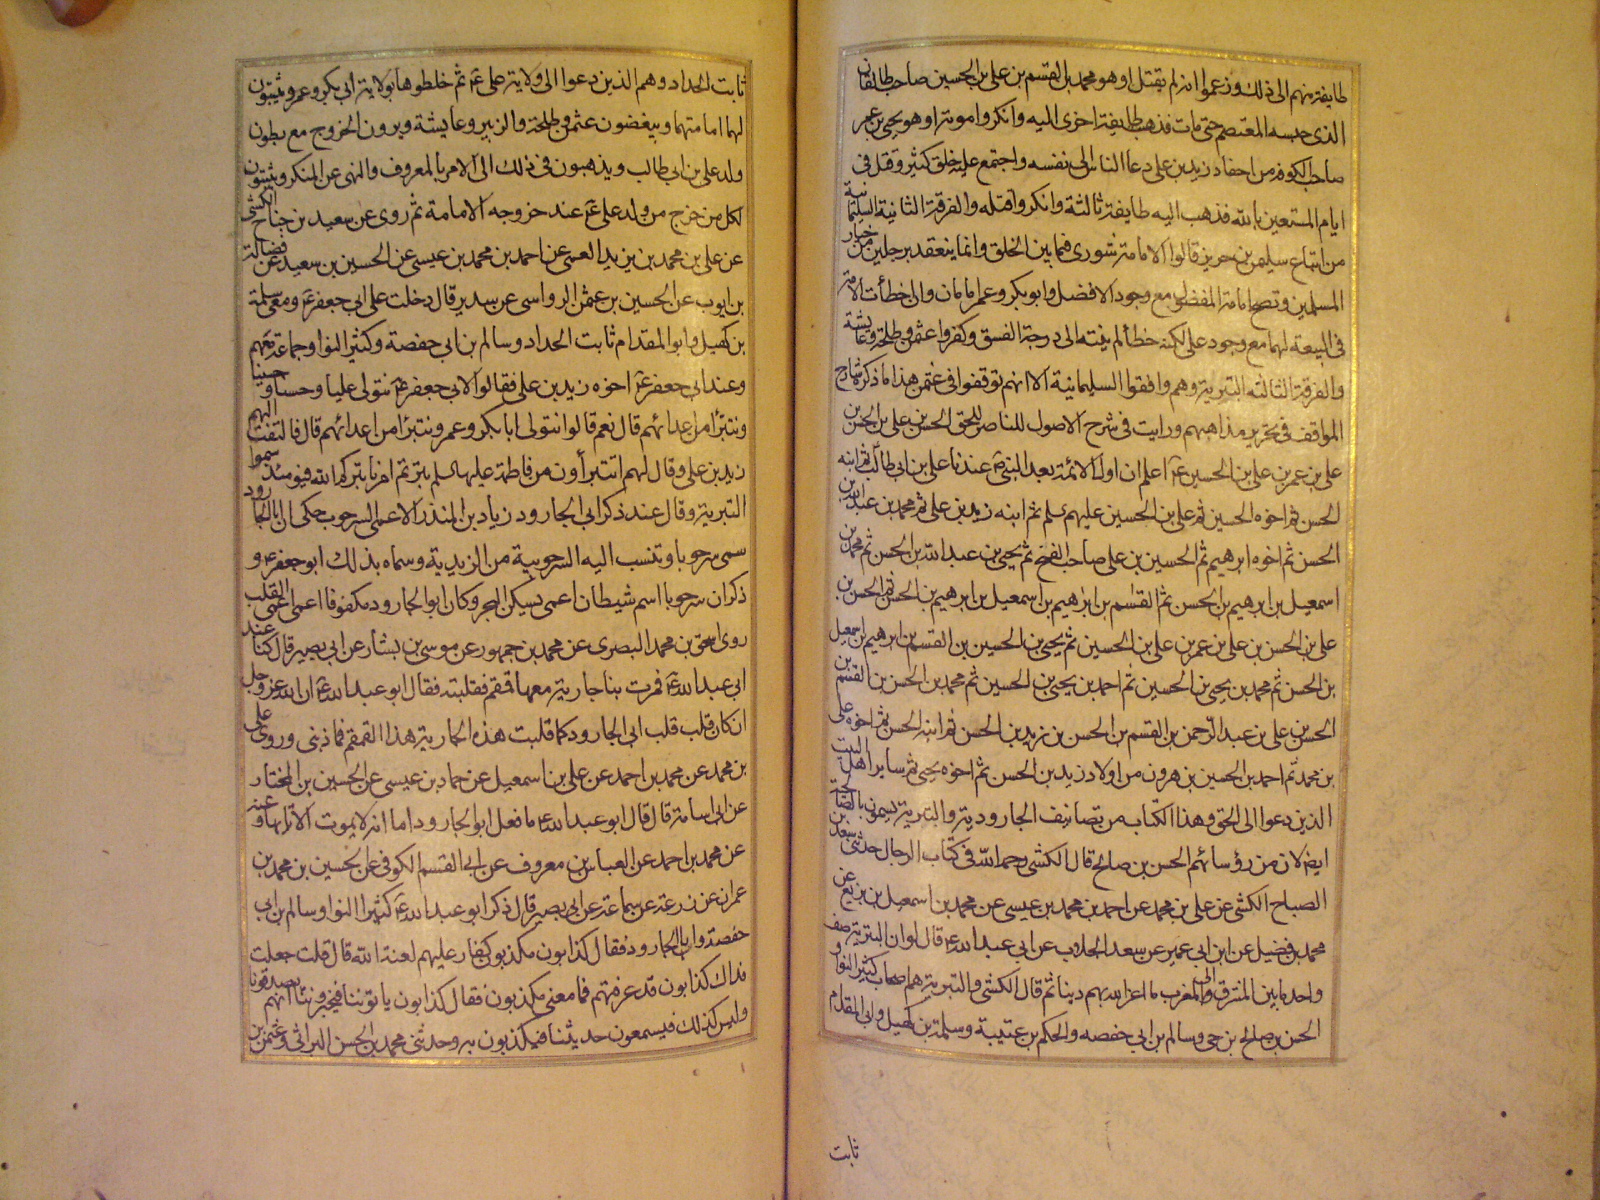 طايفة منهم الى ذلك وزعموا انه لم يقتل او هو محمد بن القسم بن على بن الحسين صاحب طالقان
الذى حبسه المعتصم حتى مات فذهب طايفة اخرى اليه وانكروا موته او هو يحيى بن عمر
صاحب الكوفة من احفاد زيد بن على دعا الناس الى نفسه واجتمع عليه خلق كثير وقتل فى
ايام المستعين بالله فذهب اليه طايفة ثالثة وانكروا قتله والفرقة الثانية السليمانية
من اتباع سليمن بن جرير قالوا الامامة شورى فيما بين الخلق وانما ينعقد برجلين من خيار
المسلمين وتصح امامة المفضول مع وجود الافضل وابو بكر وعمر امامان وان اخطأت الامة
فى البيعة لهما مع وجود على لكنه خطأ لم ينته الى درجة الفسق وكفروا عثمن وطلحة وعايشة
والفرقة الثالثة البترية وهم وافقوا السليمانية الا انهم توقفوا فى عثمن هذا ما ذكره شارح
المواقف فى تحرير مذاهبهم ورايت فى شرح الاصول للناصر للحق الحسن بن على بن الحسن
على بن عمر بن على بن الحسين ع اعلم ان اول الائمة بعد النبى ص عندنا على بن ابى طالب ثم ابنه
الحسن ثم اخوه الحسين ثم على بن الحسين عليهم سلم ثم ابنه زيد بن على ثم محمد بن عبد الله بن
الحسن ثم اخوه ابرهيم ثم الحسين بن على صاحب الفخ ثم يحيى بن عبد الله بن الحسن ثم محمد بن
اسمعيل بن ابرهيم بن الحسن ثم القسم بن ابرهيم بن اسمعيل بن ابرهيم بن الحسن ثم الحسن بن
على بن الحسن بن على بن عمر بن على بن الحسين ثم يحيى بن الحسين بن القسم بن ابرهيم بن اسمعيل
بن الحسن ثم محمد بن يحيى بن الحسين ثم احمد بن يحيى بن الحسين ثم محمد بن الحسن بن القسم بن
الحسن بن على بن عبد الرحمن بن القسم بن الحسن بن زيد بن الحسن ثم ابنه الحسن ثم اخوه على
بن محمد ثم احمد بن الحسين بن هرون من اولاد زيد بن الحسن ثم اخوه يحيى ثم ساير اهل البيت
الذين دعوا الى الحق وهذا الكتاب من تصانيف الجارودية والبترية يسمون بالصالحية
ايضا لان من رؤسائهم الحسن بن صالح قال الكشى رحمه الله فى كتاب الرجال حدثنى سعد بن
الصباح الكشى عن على بن محمد عن احمد بن محمد بن عيسى عن محمد بن اسمعيل بن بزيع عن
محمد بن فضيل عن ابن ابى عمير عن سعد الجلاب عن ابى عبد الله ع قال لو ان البترية صف
واحد ما بين المشرق الى المغرب ما اعز الله بهم دينا ثم قال الكشى والبترية هم اصحاب كثير النوا و
الحسن بن صالح بن حى وسالم بن ابى حفصه والحكم بن عتيبة وسلمة بن كهيل وابى المقدام
ثابت
ثابت الحداد وهم الذين دعوا الى ولاية على ع ثم خلطوها بولاية ابى بكر وعمر ويثبتون
لهما امامتهما ويبغضون عثمن وطلحة والزبير وعايشة ويرون الخروج مع بطون
ولد على بن ابى طالب ويذهبون فى ذلك الى الامر بالمعروف والنهى عن المنكر ويثبتون
لكل من خرج من ولد على ع عند خروجه الامامة ثم روى عن سعيد بن جناح الكشى
عن على بن محمد بن يزيد القمى عن احمد بن محمد بن عيسى عن الحسين بن سعيد عن فضالة
بن ايوب عن الحسين بن عثمن الرواسى عن سدير قال دخلت على ابى جعفر ع ومعى سلمة
بن كهيل وابو المقدام ثابت الحداد وسالم بن ابى حفصة وكثير النوا وجماعة معهم
وعند ابى جعفر ع اخوه زيد بن على فقالوا لابى جعفر ع نتولى عليا وحسنا وحسينا
ونتبرا من اعدائهم قال نعم قالوا نتولى ابا بكر وعمر ونتبرا من اعدائهم قال فالتفت اليهم
زيد بن على وقال لهم اتتبرأون من فاطمة عليها سلم بترتم امرنا بتركم الله فيومئذ سموا
البترية وقال عند ذكر ابى الجارود زياد بن المنذر الاعمى السرحوب حكى ان ابا الجارود
سمى سرحوبا وتنسب اليه السرحوبية من الزيدية وسماه بذلك ابو جعفر ع و
ذكر ان سرحوبا اسم شيطان اعمى يسكن البحر وكان ابو الجارود مكفوفا اعمى اعمى القلب
روى اسحق بن محمد البصرى عن محمد بن جمهور عن موسى بن بشار عن ابى بصير قال كنا عند
ابى عبد الله ع فمرت بنا جارية معها قمقم فقلبته فقال ابو عبد الله ع ان الله عز وجل
ان كان قلب قلب ابى الجارود كما قلبت هذه الجارية هذا القمقم فما ذنبى وروى على
بن محمد عن محمد بن احمد عن على بن اسمعيل عن حماد بن عيسى عن الحسين بن المختار
عن ابى اسامة قال قال ابو عبد الله ع ما فعل ابو الجارود اما انه لا يموت الا تائها وعنه
عن محمد بن احمد عن العباس بن معروف عن ابى القسم الكوفى عن الحسين بن محمد بن
عمران عن زرعة عن سماعة عن ابى بصير قال ذكر ابو عبد الله ع كثير النوا وسالم بن ابى
حفصة وابا الجارود فقال كذابون مكذبون كفار عليهم لعنة الله قال قلت جعلت
فداك كذابون قد عرفتهم فما معنى مكذبون فقال كذابون ياتوننا فيخبروننا انهم يصدقونا
وليس كذلك فيسمعون حديثنا فيكذبون به وحدثنى محمد بن الحسن البراثى وعثمن بن